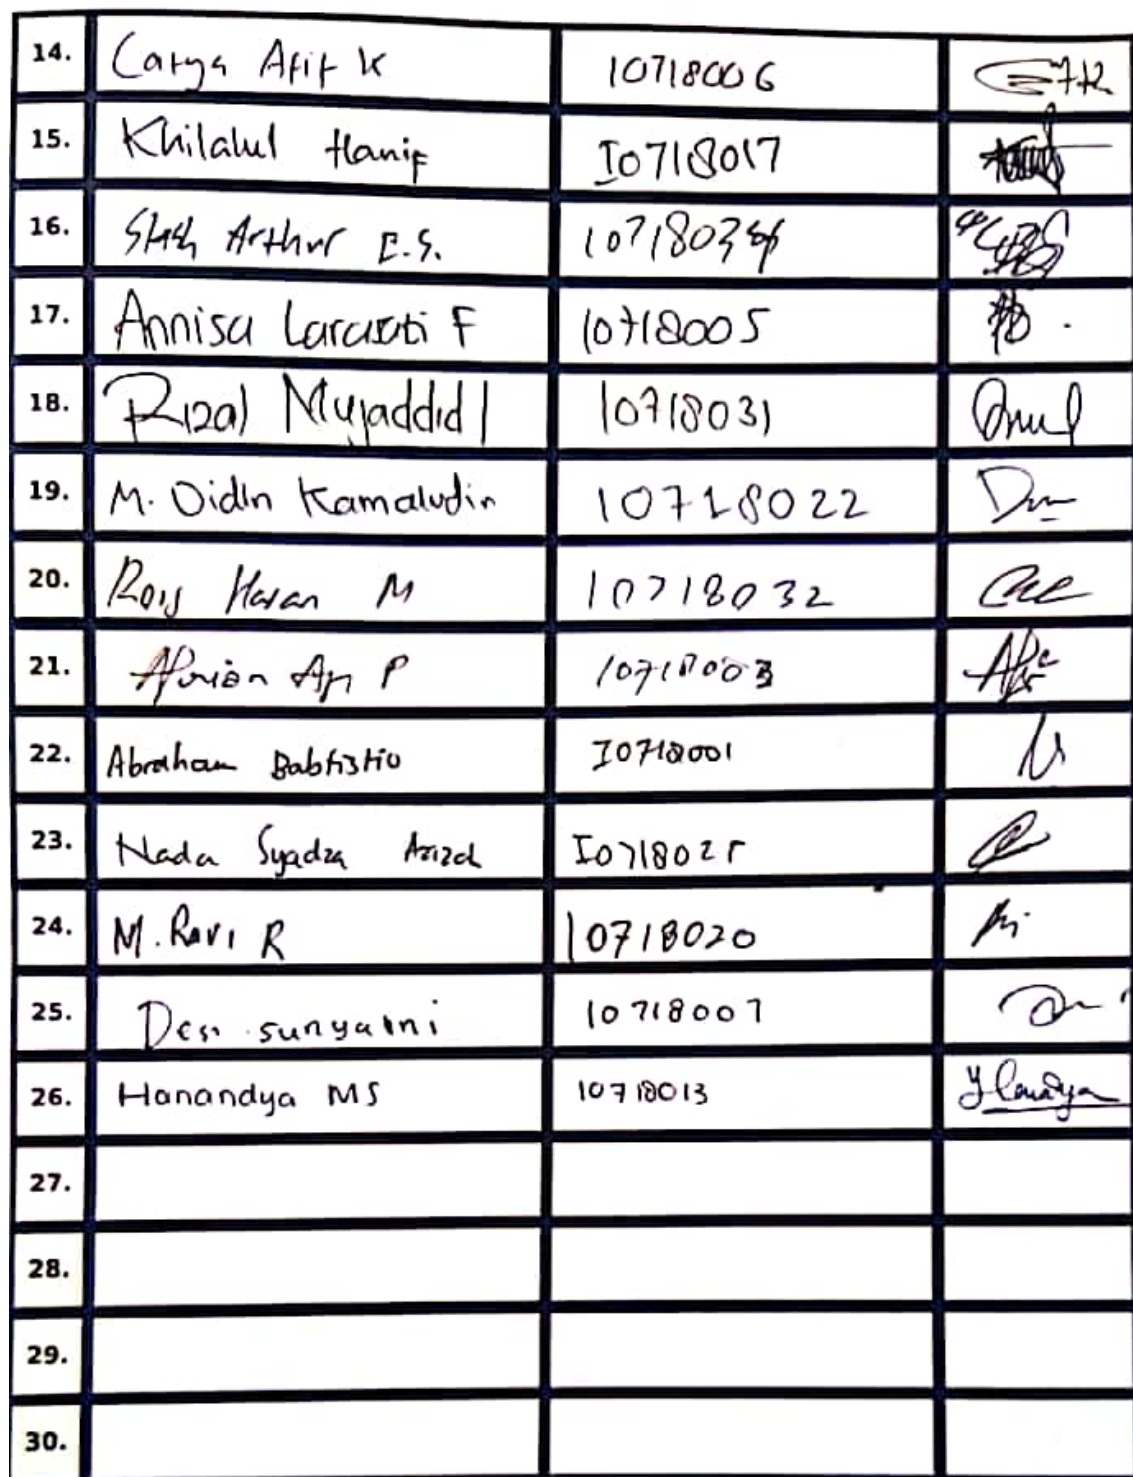 14. Carya Afif K 10718006
15. Khilalul Hanif I0718017
16. Arthur E.S.
17. Annisa Larasati F 10718005
18. Rizal Mujaddid I 10718031
19. M. Didin Kamaludin 10718022
20. Rois Hasan M 10718032
21. P 10718003
22. Abraham Babtistio I0718001
23. Nada Syadza Azizah I0718025
24. M. Ravi R 10718020
25. Desi sunyarni 10718007
26. Hanandya MS 10718013 Hanandya
27.
28.
29.
30.